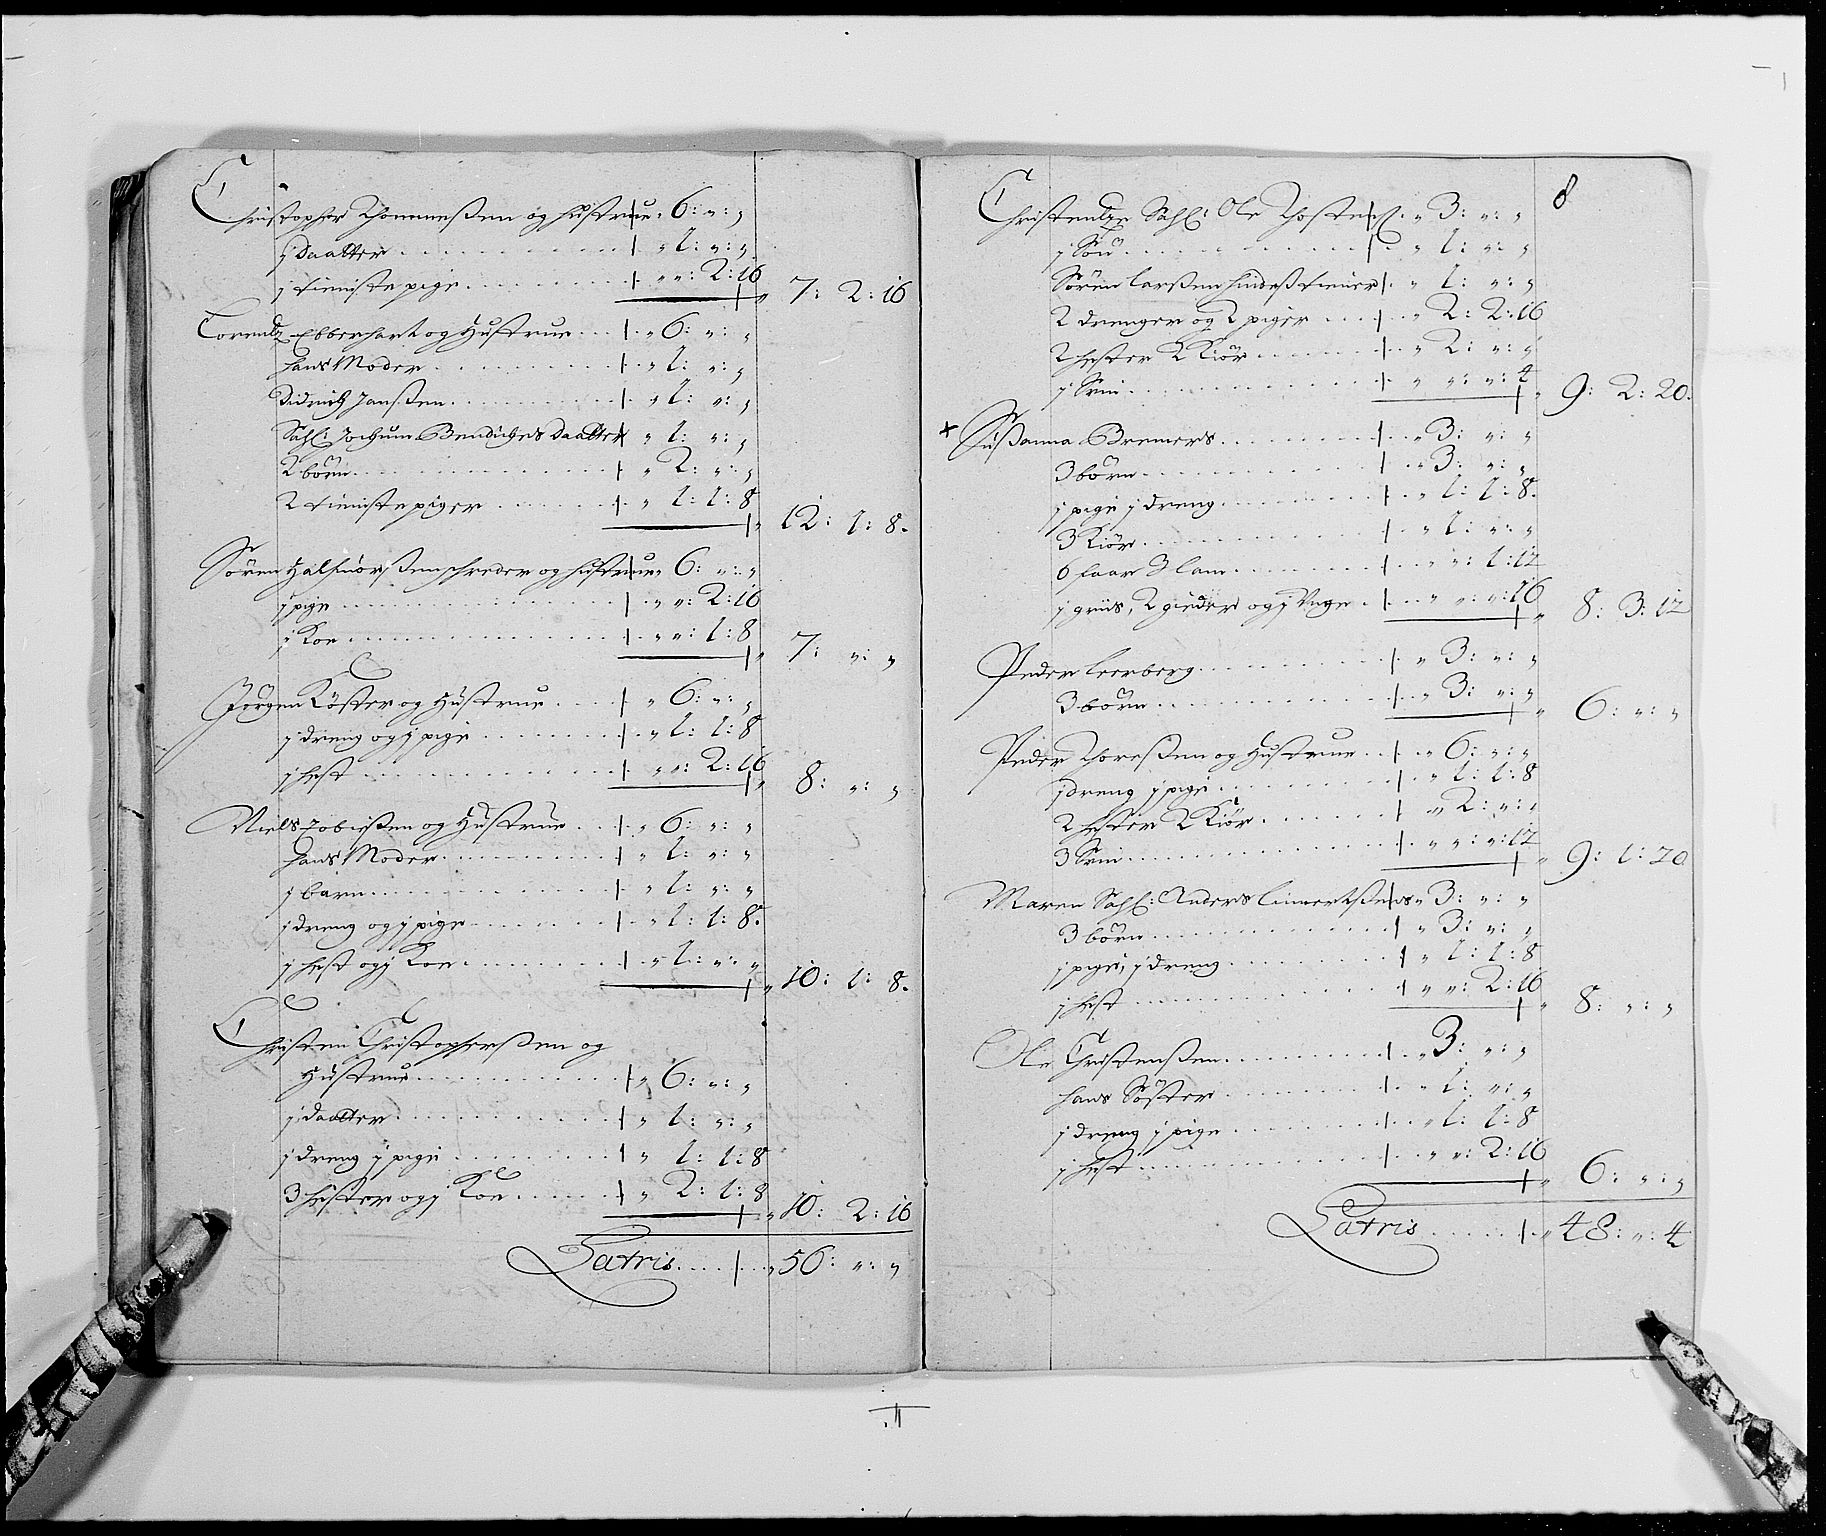 Christopher Thommeßen og hustrue „ 6: „: „
j daatter . . . „ 1: „: „
j tieniste pige . . . „ „: 2: 16 „ 7: 2: 16
Lorendz Ebberhart og Hustrue . . . „ 6: „: „
hans Moder . . . „ 1: „: „
Didrich Janßen . . . „ 1: „: „
Sahl: Jochum Bendichs daatter „ 1: „: „
2 börn . . . „ 2: „: „
2 tieniste piger . . . „ 1: 1: 8 „ 12: 1: 8.
Sören schreder og hustrue „ 6: „: „
j pige . . . „ „: 2: 16
j Koe . . . „ „: 1: 8 „ 7: „: „
Jörgen Köster og Hustrue . . . „ 6: „: „
j dreng og j pige . . . „ 1: 1: 8
j hest . . . „ „: 2: 16 „ 8: „: „
Niels Tobießen og Hustrue . . . „ 6: „: „
hans Moder . . . „ 1: „: „
j barn . . . „ 1: „: „
j dreng og j pige . . . „ 1: 1: 8.
j hest og j Koe . . . „ 1: „: „ „ 10: 1: 8.
Christen Christopherßen og
Hustrue . . . „ 6: „: „
j daatter . . . „ 1: „: „
j dreng j pige . . . „ 1: 1: 8
3 hester og j Koe . . . „ 2: 1: 8 „ 10: 2: 16
Latris . . . „ 56: „: „
8
Sahl: Ole „ 3: „: „
j Sön . . . „ 1: „: „
Sören Larßen hindeß tiener „ 1: „: „
2 drenger og 2 piger . . . „ 2: 2: 16
2 hester 2 Kiör . . . „ 2: „: „
j Svin . . . „ „: „: 4 „ 9: 2: 20.
+ Sußanna Bremers . . . „ 3: „: „
3 börn . . . „ 3: „: „
j pige j dreng . . . „ 1: 1: 8.
3 Kiör . . . „ 1: „: „
6 faar 3 lam . . . „ „: 1: 12
j griis, 2 gieder og j Unge . . . „ „: „: 16 „ 8: 3: 12
Peder Leerberg . . . „ 3: „: „
3 börn . . . „ 3: „: „ „ 6: „: „
Peder Thoreßen og Hustrue . . . „ 6: „: „
j dreng j pige . . . „ 1: 1: 8
2 hester 2 Kiör . . . „ 2: „: „
3 Svin . . . „ „: „: 12 „ 9: 1: 20
Maren Sahl: Anders „ 3: „: „
3 börn . . . „ 3: „: „
j pige, j dreng . . . „ 1: 1: 8
j hest . . . „ „: 2: 16 „ 8: „: „
Ole Christenßen . . . „ 3: „: „
hans Söster . . . „ 1: „: „
j dreng j pige . . . „ 1: 1: 8
j hest . . . „ „: 2: 16 „ 6: „: „
Latris . . . „ 48: „: 4